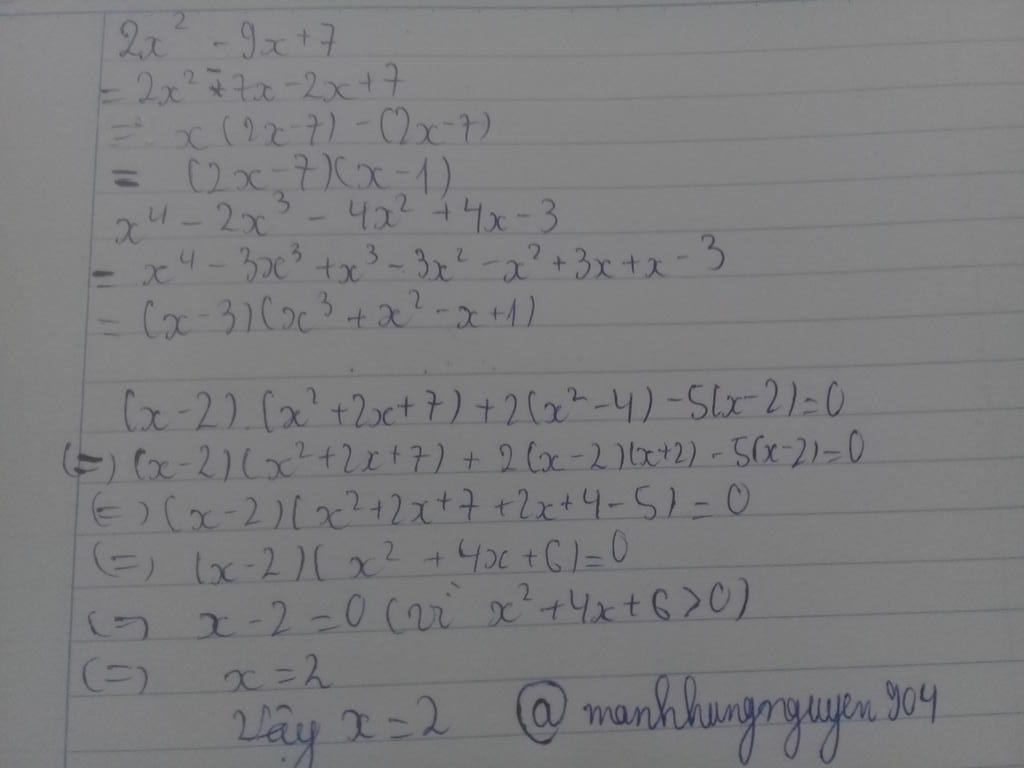 2x² - 9x + 7
= 2x² - 7x - 2x + 7
= x(2x - 7) - (2x - 7)
= (2x - 7)(x - 1)
x⁴ - 2x³ - 4x² + 4x - 3
= x⁴ - 3x³ + x³ - 3x² - x² + 3x + x - 3
= (x - 3)(x³ + x² - x + 1)
(x - 2).(x² + 2x + 7) + 2(x² - 4) - 5(x - 2) = 0
(=) (x - 2)(x² + 2x + 7) + 2(x - 2)(x + 2) - 5(x - 2) = 0
(=) (x - 2)(x² + 2x + 7 + 2x + 4 - 5) = 0
(=) (x - 2)(x² + 4x + 6) = 0
(=) x - 2 = 0 (vì x² + 4x + 6 > 0)
(=) x = 2
Vậy x = 2 @ manhhungnguyen904